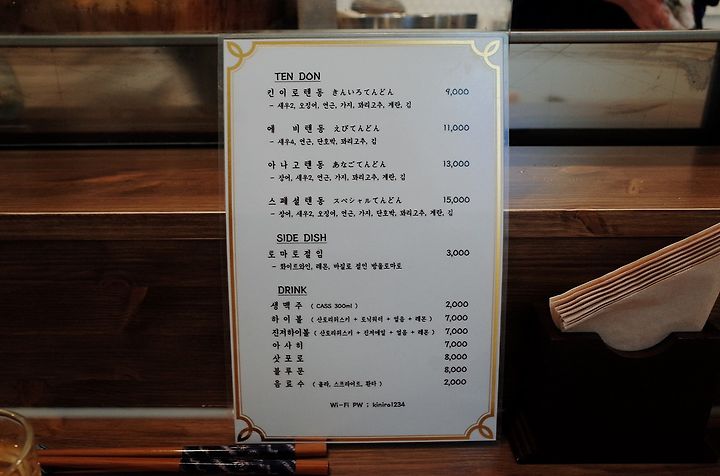 TEN DON
킨이로텐동 きんいろてんどん 9,000
- 새우2, 오징어, 연근, 가지, 꽈리고추, 계란, 김
에 비텐동 えびてんどん 11,000
- 새우4, 연근, 단호박, 꽈리고추, 김
아나고텐동 あなごてんどん 13,000
- 장어, 새우2, 연근, 가지, 꽈리고추, 계란, 김
스페셜텐동 スペシャルてんどん 15,000
- 장어, 새우2, 오징어, 연근, 가지, 단호박, 꽈리고추, 계란, 김
SIDE DISH
토마토절임 3,000
- 화이트와인, 레몬, 바질로 절인 방울토마토
DRINK
생맥주 ( CASS 300ml ) 2,000
하이볼 ( 산토리위스키 + 토닉워터 + 얼음 + 레몬 ) 7,000
진저하이볼 ( 산토리위스키 + 진저에일 + 얼음 + 레몬 ) 7,000
아사히 7,000
삿포로 8,000
블루문 8,000
음료수 ( 콜라, 스프라이트, 환타 ) 2,000
Wi-Fi PW ; kiniro1234